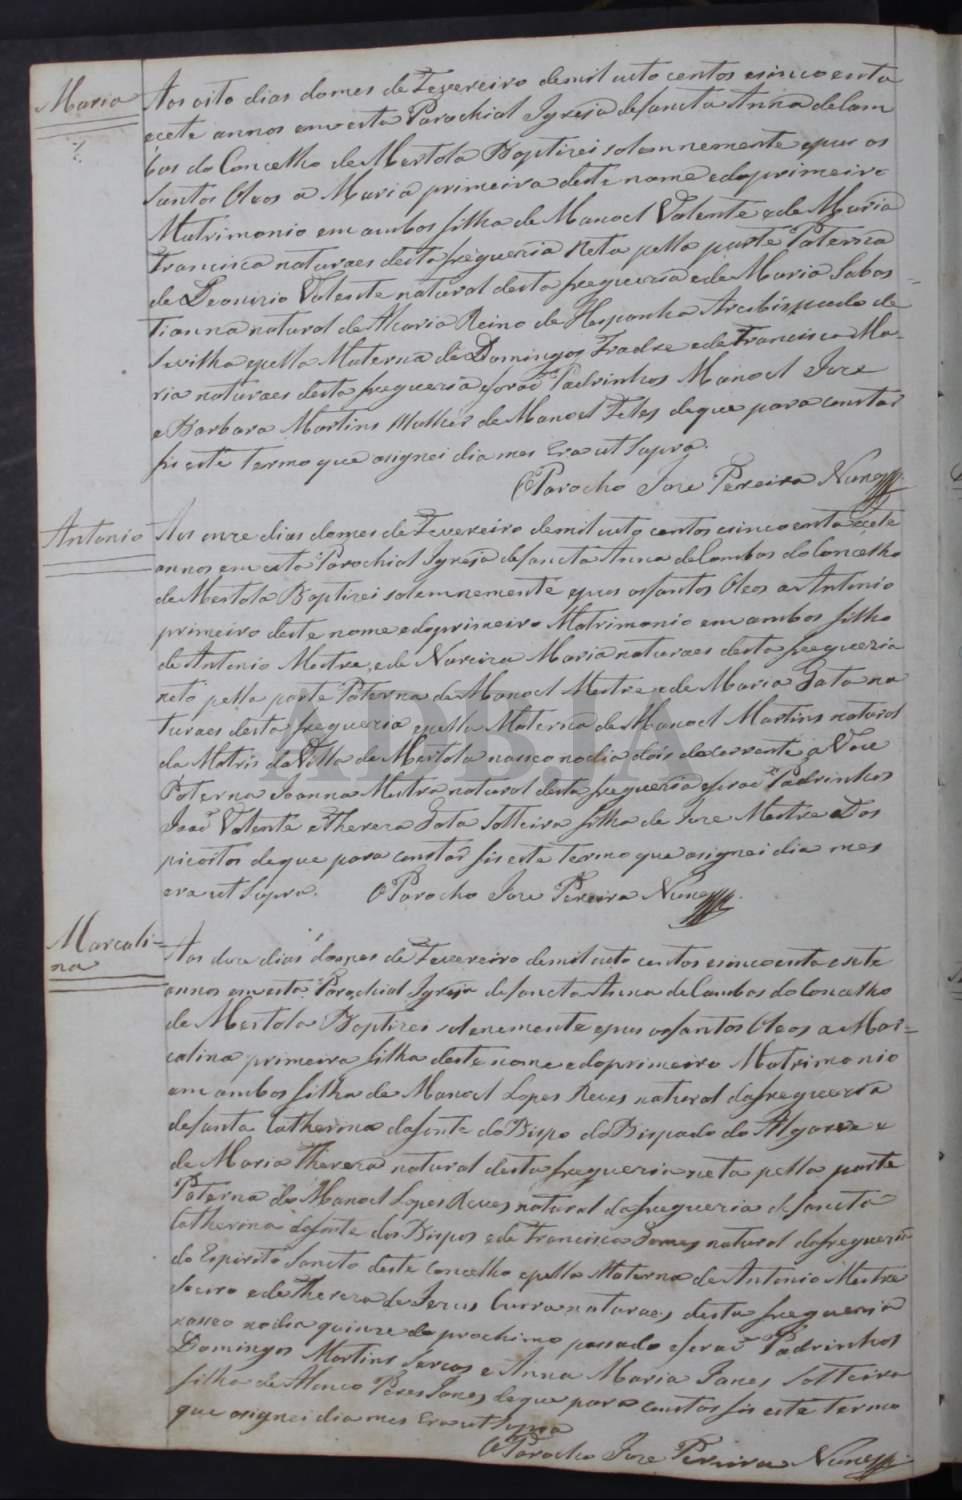 Maria
Aos oito dias do mes de Fevereiro de mil outo centos e sinco enta
e cete annos em esta Parochial Igreja de Sancta Anna de Cam
bas do Concelho de Mertola Baptizei solemnemente e puz os
Santos Oleos a Maria primeira deste nome e do primeiro
Matrimonio em ambos filha de Manoel Valente e de Maria
Francisca naturaes desta freguezia Neta pella parte Paterna
de Leonizio Valente natural desta freguezia e de Maria Sabas
tianna natural de Alcaria Reino de Hespanha Arcebispado de
Sevilha e pella Materna de Domingos e de Francisca Ma-
ria naturaes desta freguezia e foraõ Padrinhos Manoel Joze
e Barbara Martins Mulher de Manoel Teles de que para constar
fis este Termo que asignei dia mes Era ut Supra.
O Parocho Joze Pereira Nunes
Antonio
Aos onze dias do mes de Fevereiro de mil outo centos e sinco enta e cete
annos em esta Parochial Igreja de Sancta Anna de Cambas do Concelho
de Mertola Baptizei solemnemente e puz os Santos Oleos a Antonio
primeiro deste nome e do primeiro Matrimonio em ambos filho
de Antonio Mestre, e de Nareiza Maria naturaes desta freguezia
neto pella parte Paterna de Manoel Mestre e de Maria Gata na
turaes desta freguezia e pella Materna de Manoel Martins natural
da Matris da Villa de Mertola nasceo no dia dois do corrente a Voce
Poterna Joanna Mestra natural desta freguezia e foraõ Padrinhos
Joaõ Valente e Thereza Gata Solteira filha de Joze Mestre dos
picoitos de que para constar fis este Termo que asignei dia mes
era ut Supra. O Parocho Joze Pereira Nunes
Marcoli=
na
Aos doze dias do mes de Fevereiro de mil outo centos e sinco enta e sete
annos em esta Parochial Igreja de Sancta Anna de Cambas do Concelho
de Mertola Baptizei solenemente e puz os Santos Oleos a Mar=
colina primeira filha deste nome e do primeiro Matrimonio
em ambos filha de Manoel Lopes Reves natural da freguezia
de Santa Catherina da fonte do Bispo do Bispado do Algarve e
de Maria Thereza natural desta freguezia neta pella parte
Paterna de Manoel Lopes Reves natural da freguezia de Sancta
Catherina da fonte dos Bispos e de Francisca Gomes natural da freguezia
do Espirito Sancto deste Concelho e pella Materna de Antonio Mestre
e de Thereza de Jezus Curra naturaes desta freguezia
nasceo no dia quinze do prochimo passado e foraõ Padrinhos
Domingos Martins e Anna Maria Janes Solteira
filha de Peres Janes de que para constar fis este termo
que asignei dia mes Era ut Supra
O Parocho Joze Pereira Nunes
ADBJA